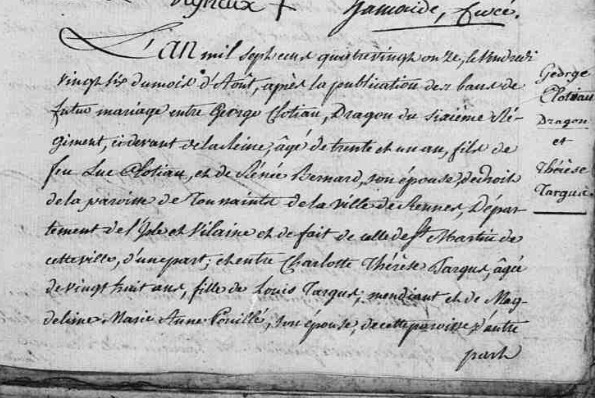 Vigneux +
Gamonide, Curé.
L'an mil sept cens quatrevingt onze, le vendredi
vingt six du mois d'Août, après la publication des bans de
futur mariage entre George Clotiau, Dragon du sixième Ré-
giment, ci devant de la Reine, âgé de trente et un an, fils de
feu Luc Clotiau, et de Rénée Bernard, son épouse, de droit
de la paroisse de Toussaints de la ville de Rennes, Dépar-
tement de l'Isle et Vilaine et de fait de celle de St Martin de
cette ville, d'une part, et entre Charlotte Thérèse Targus, âgée
de vingt huit ans, fille de Louis Targus, mendiant et de Mag-
delaine Marie Anne Pouillé, son épouse, de cette paroisse d'autre
part
George
Clotiau
Dragon
et
Thérèse
Targus